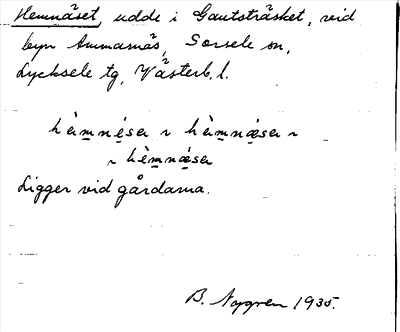 Hemnäset, udde i Gautsträsket, vid
byn Ammarnäs, Sorsele sn,
Lycksele tg, Västerb. l.
hèm̲nése ~ hèm̲næ̀se ~
~ hèm̲næ̀se
Ligger vid gårdarna.
B. Nygren 1935.